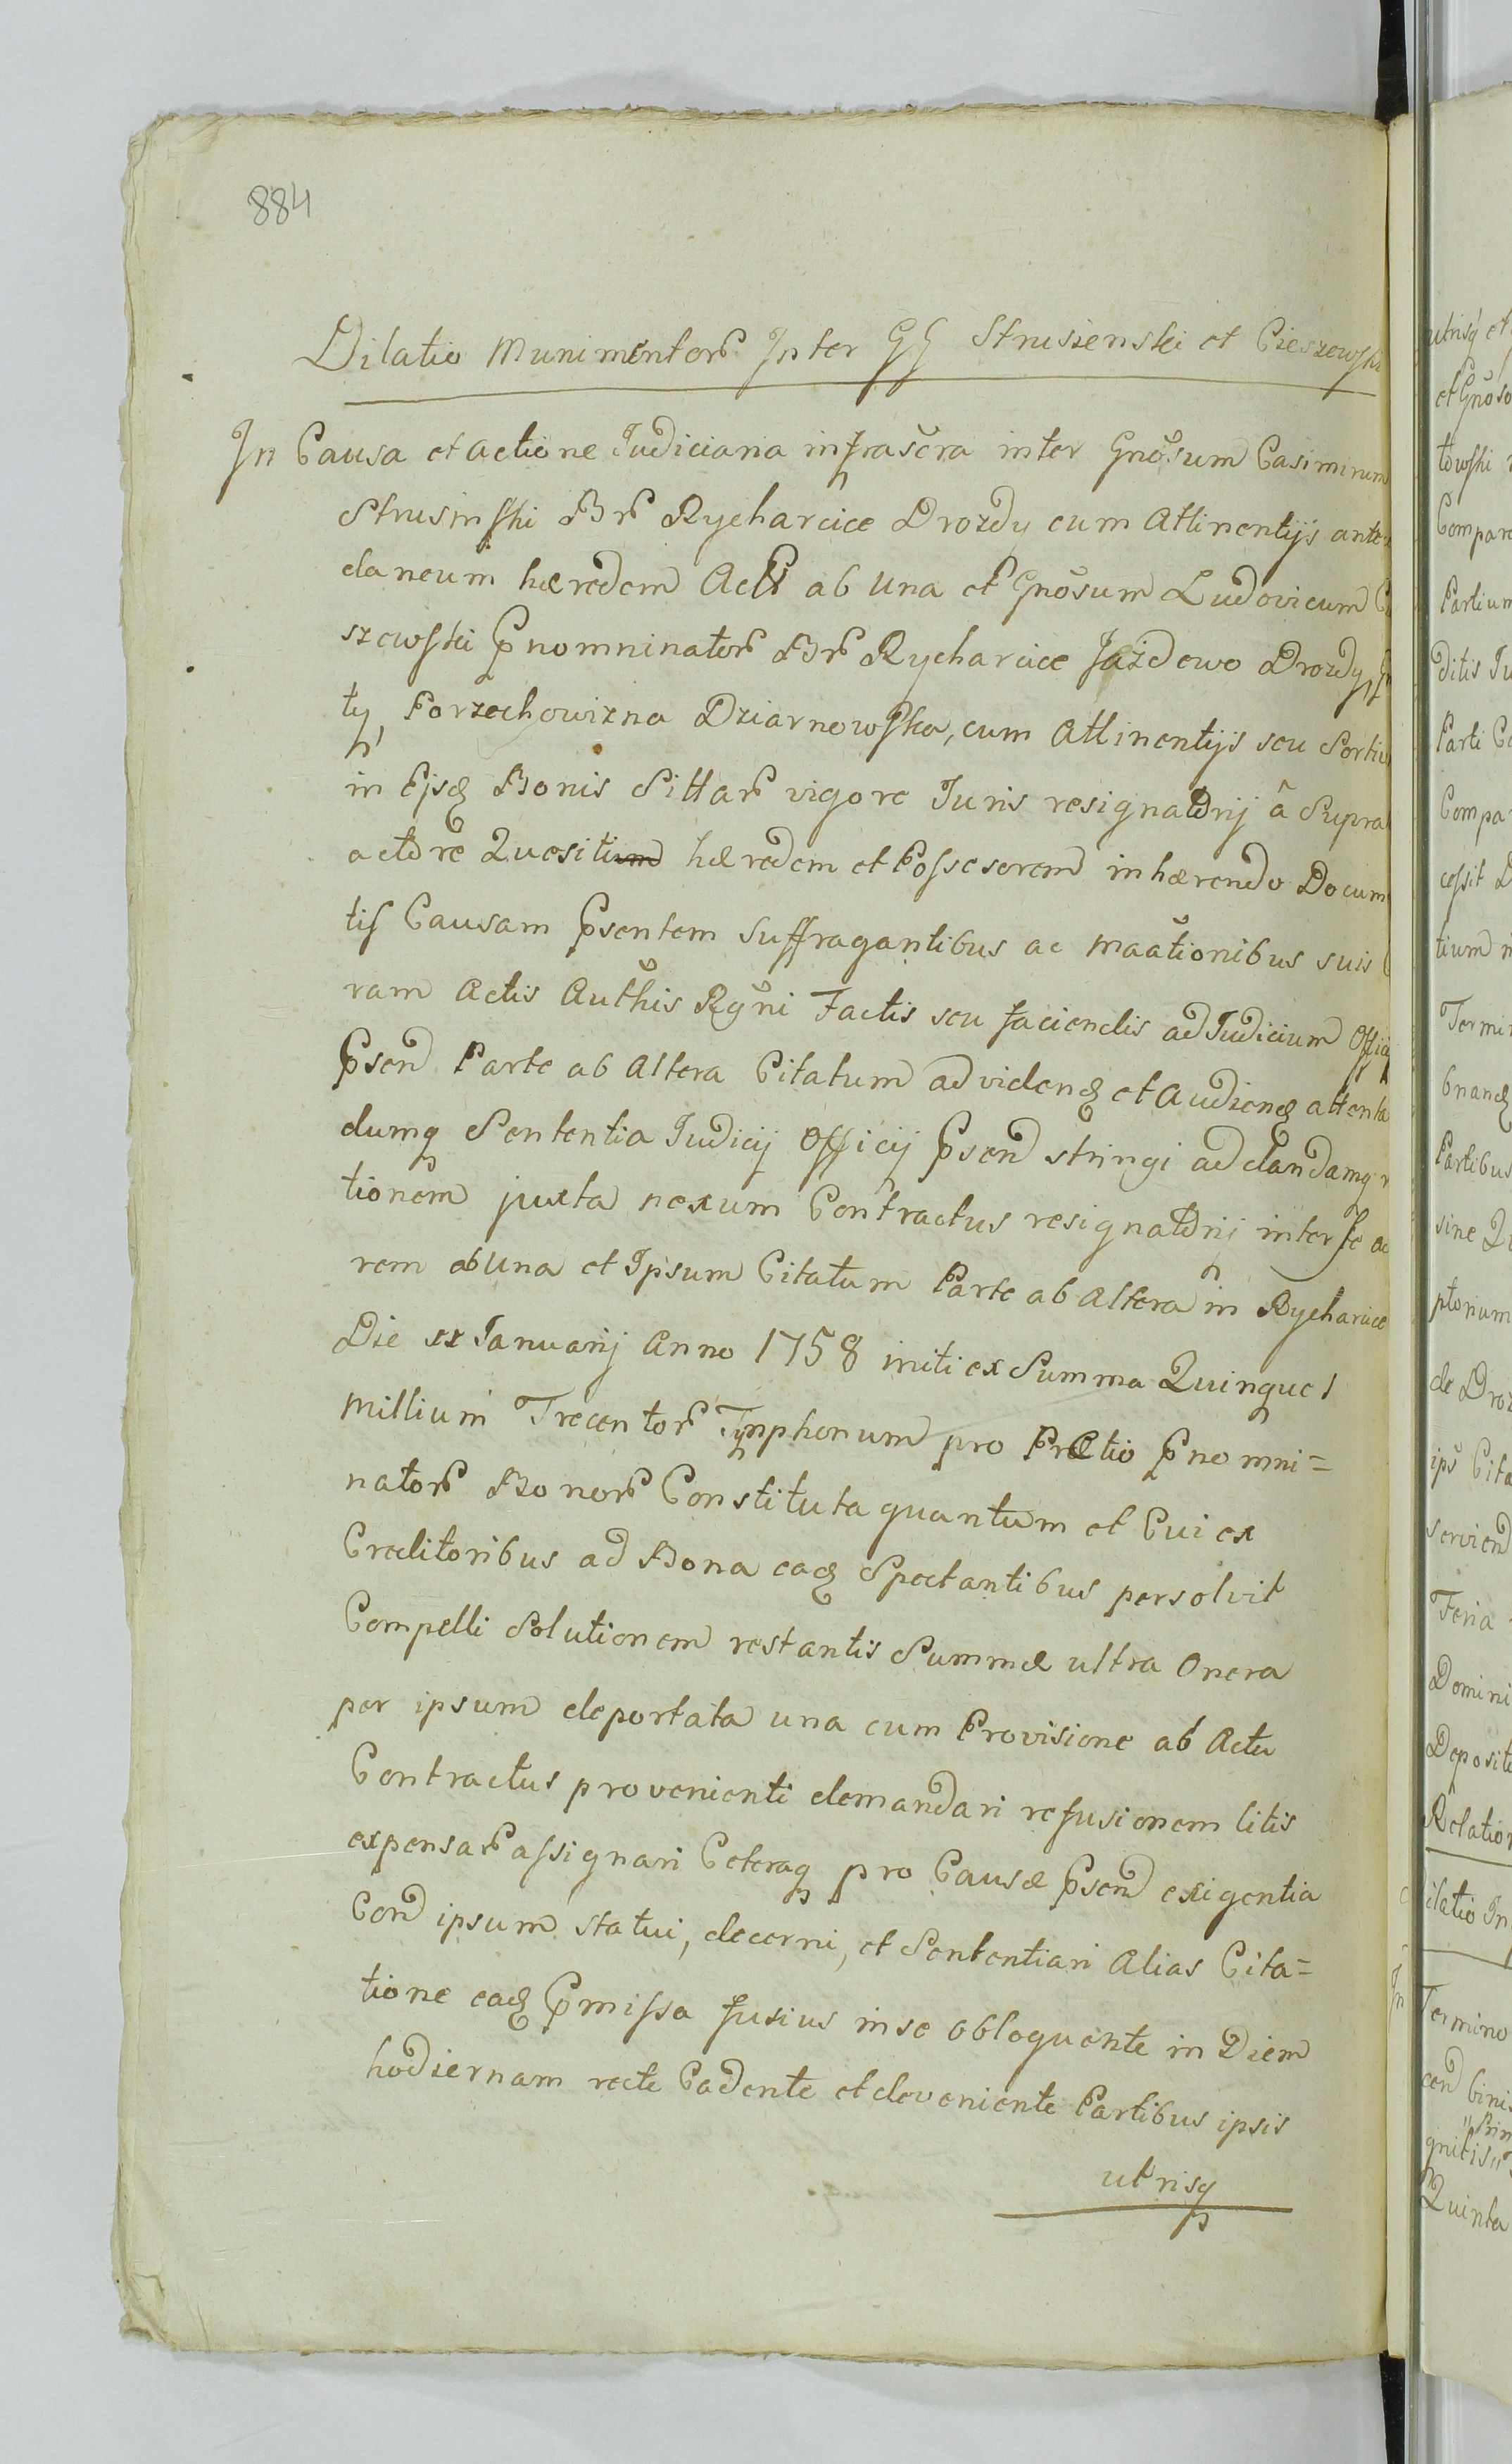 884
Dilatio Munimentorꝝ Inter GG Strusienski et Cieszewski
In Causa et actione Judiciaria infrascra inter Gnosum Casimirum
Strusinski Brꝝ Rycharcice Drozdy cum Attinentijs ante
daneum hæredem Acti ab una et Gnosum Ludovicum
szewski Pnomninatorꝝ Brꝝ Rycharcice Jazdowo Drozdy
ty Porzochowizna Dziarnowska, cum Attinentijs seu Sortiu
in Ejsdȝ Bonis Sittarꝝ vigore Juris resignatorij â Supra
actore Quesiti hæredem et Possesorem inhærendo Docum
tis Causam Psentem Suffragantibus ac maationibus suis
ram Actis Authis Rgni Factis seu faciendis ad Judicium Officij
Psend Parte ab Altera Citatum ad videndȝ et Audiendȝ attenta
dumq Sententia Judicij Officij Psend stringi ad dandamq
tionem juxta nexum Contractus resignatorij inter se ac
rem ab una et Ipsum Citatum Parte ab altera in Rycharcice
Die xx Januarij Anno 1758 initi ex Summa Quinque
Millium Trecentorꝝ Tynphonum pro Prætio Pnomni=
natorꝝ Bonorꝝ Constituta quantum et Cui ex
Creditoribus ad Bona eadȝ Spectantibus persolvit
Compelli Solutionem restantis Summæ ultra Onera
per ipsum deportata una cum Provisione ab Actu
Contractus provenienti demandari refusionem litis
expensarꝝ assignari Ceteraq pro Causæ Psend exigentia
Cond ipsum statui, decerni, et Sententiari Alias Cita=
tione eadȝ Pmissa fusius in se obloquente in Diem
hodiernam recte Cadente et deveniente Partibus ipsis
utrisq
utrisq et
et Gnoso
towski
Compare
Partium
ditis Ju
Parti
Compar
cessit D
tium
Termi
Partibus
sine
ptorium
de Droz
ips Cita
serviend
Feria
Domini
Deposit
Relation
ilatio In
Termino
gnitis
Quinta